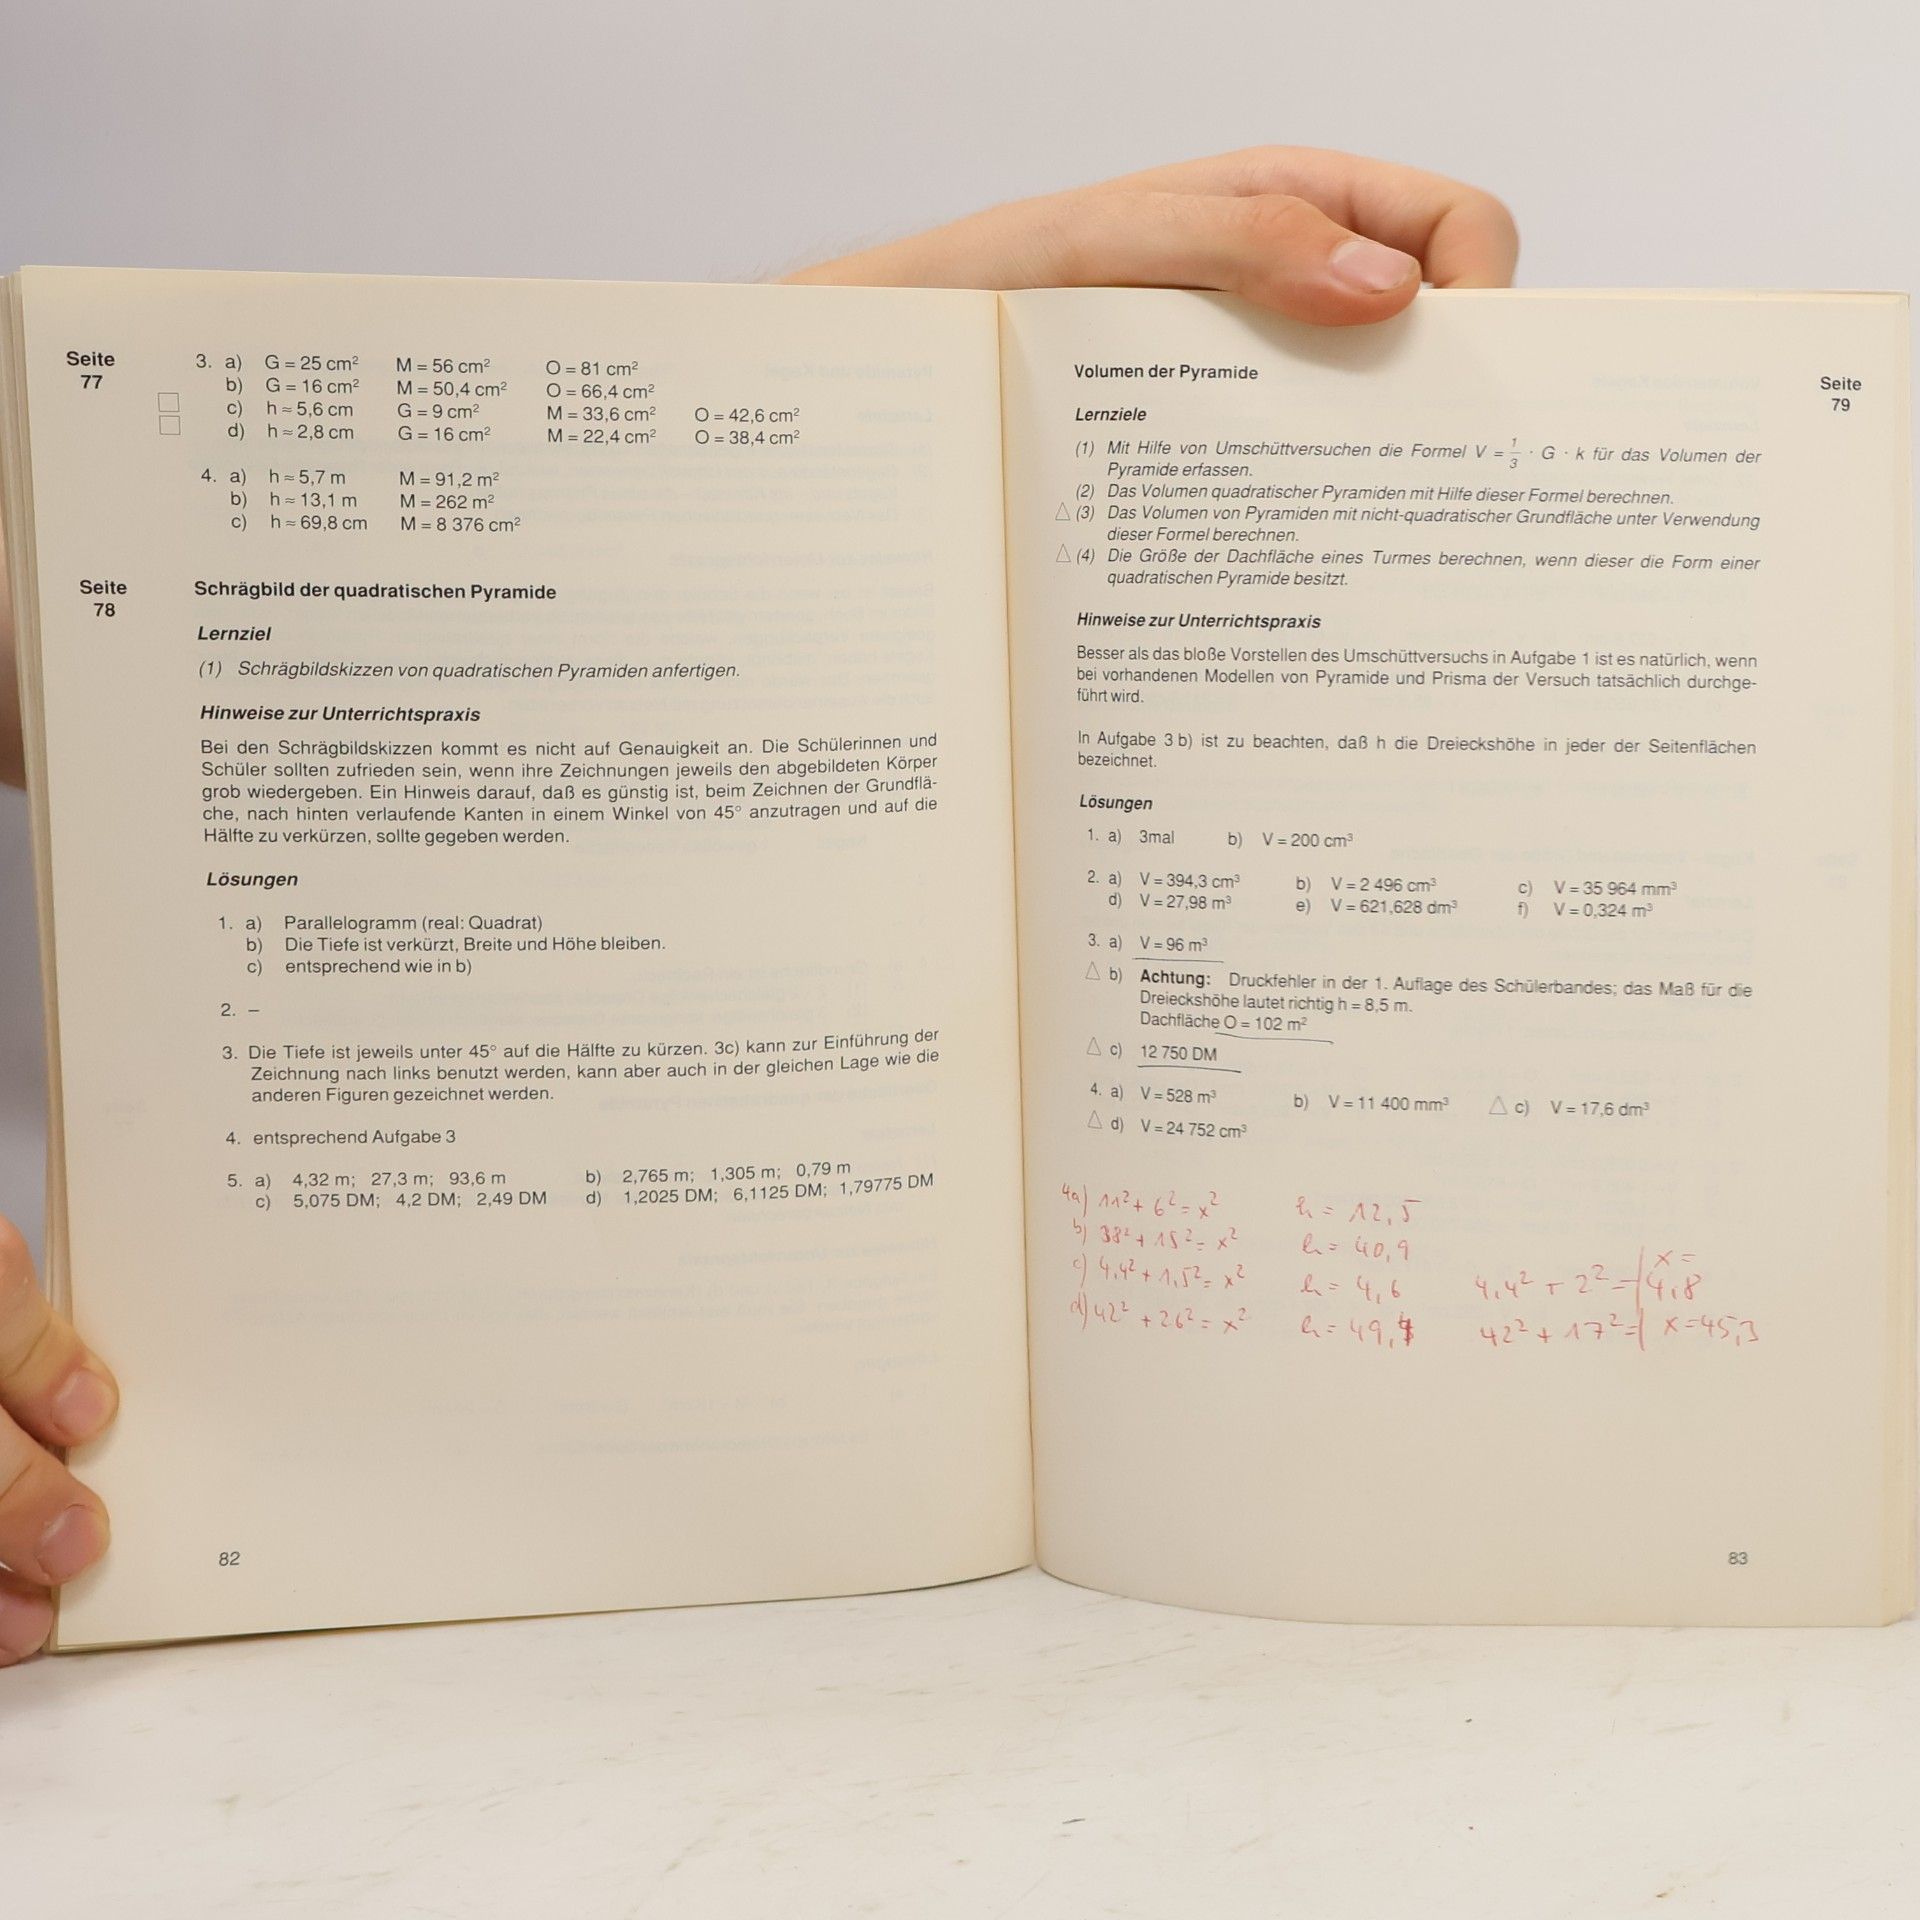 Seite
77
3. a) G = 25 cm² M = 56 cm² O = 81 cm²
b) G = 16 cm² M = 50,4 cm² O = 66,4 cm²
c) h ≈ 5,6 cm G = 9 cm² M = 33,6 cm² O = 42,6 cm²
d) h ≈ 2,8 cm G = 16 cm² M = 22,4 cm² O = 38,4 cm²
4. a) h ≈ 5,7 m M = 91,2 m²
b) h ≈ 13,1 m M = 262 m²
c) h ≈ 69,8 cm M = 8 376 cm²
Seite
78
Schrägbild der quadratischen Pyramide
Lernziel
(1) Schrägbildskizzen von quadratischen Pyramiden anfertigen.
Hinweise zur Unterrichtspraxis
Bei den Schrägbildskizzen kommt es nicht auf Genauigkeit an. Die Schülerinnen und
Schüler sollten zufrieden sein, wenn ihre Zeichnungen jeweils den abgebildeten Körper
grob wiedergeben. Ein Hinweis darauf, daß es günstig ist, beim Zeichnen der Grundflä-
che, nach hinten verlaufende Kanten in einem Winkel von 45° anzutragen und auf die
Hälfte zu verkürzen, sollte gegeben werden.
Lösungen
1. a) Parallelogramm (real: Quadrat)
b) Die Tiefe ist verkürzt, Breite und Höhe bleiben.
c) entsprechend wie in b)
2. –
3. Die Tiefe ist jeweils unter 45° auf die Hälfte zu kürzen. 3c) kann zur Einführung der
Zeichnung nach links benutzt werden, kann aber auch in der gleichen Lage wie die
anderen Figuren gezeichnet werden.
4. entsprechend Aufgabe 3
5. a) 4,32 m; 27,3 m; 93,6 m b) 2,765 m; 1,305 m; 0,79 m
c) 5,075 DM; 4,2 DM; 2,49 DM d) 1,2025 DM; 6,1125 DM; 1,79775 DM
82
Volumen der Pyramide
Seite
79
Lernziele
(1) Mit Hilfe von Umschüttversuchen die Formel V = 1/3 · G · k für das Volumen der
Pyramide erfassen.
(2) Das Volumen quadratischer Pyramiden mit Hilfe dieser Formel berechnen.
△ (3) Das Volumen von Pyramiden mit nicht-quadratischer Grundfläche unter Verwendung
dieser Formel berechnen.
△ (4) Die Größe der Dachfläche eines Turmes berechnen, wenn dieser die Form einer
quadratischen Pyramide besitzt.
Hinweise zur Unterrichtspraxis
Besser als das bloße Vorstellen des Umschüttversuchs in Aufgabe 1 ist es natürlich, wenn
bei vorhandenen Modellen von Pyramide und Prisma der Versuch tatsächlich durchge-
führt wird.
In Aufgabe 3 b) ist zu beachten, daß h die Dreieckshöhe in jeder der Seitenflächen
bezeichnet.
Lösungen
1. a) 3mal b) V = 200 cm³
2. a) V = 394,3 cm³ b) V = 2 496 cm³ c) V = 35 964 mm³
d) V = 27,98 m³ e) V = 621,628 dm³ f) V = 0,324 m³
3. a) V = 96 m³
△ b) Achtung: Druckfehler in der 1. Auflage des Schülerbandes; das Maß für die
Dreieckshöhe lautet richtig h = 8,5 m.
Dachfläche O = 102 m²
△ c) 12 750 DM
4. a) V = 528 m³ b) V = 11 400 mm³ △ c) V = 17,6 dm³
△ d) V = 24 752 cm³
4a) 11² + 6² = x² h = 12,5
b) 38² + 15² = x² h = 40,9
c) 4,4² + 1,5² = x² h = 4,6 4,4² + 2² = | x = 4,8
d) 42² + 26² = x² h = 49,4 42² + 17² = | x = 45,3
83